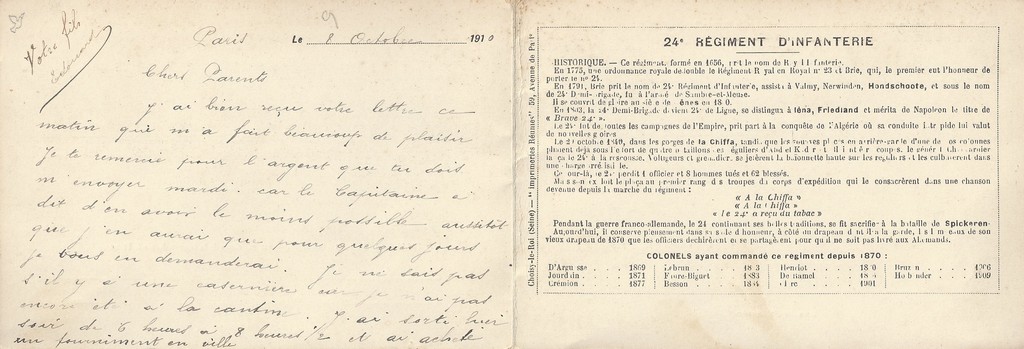 Votre fils
Edouard
Paris Le 8 9 Octobre 1910
Chers Parents
J'ai bien reçu votre lettre ce
matin qui m'a fait beaucoup de plaisir
Je te remercie pour l'argent que tu dois
m'envoyer mardi. car le Capitaine a
dit d'en avoir le moins possible aussitot
que j'en aurai que pour quelques jours
je vous en demanderai. Je ne sais pas
s'il y a une casernière car je n'ai pas
encore été à la cantine. J'ai sorti hier
soir de 6 heures à 8 heures 1/2 et ai acheté
un fourniment en ville
Choisy-le-Roi (Seine) — "Imprimeries Réunies" 59, Avenue de Paris
24e RÉGIMENT D'INFANTERIE
HISTORIQUE. — Ce régiment, formé en 1656, prit le nom de
En 1775, une ordonnance royale dédouble le Régiment Royal en Royal n° 23 et Brie, qui, le premier eut l'honneur de
porter le n° 24.
En 1791, Brie prit le nom de 24e Régiment d'Infanterie, assista à Valmy, Nerwinden, Hondschoote, et sous le nom
de 24e Demi-brigade, fu à l'armée de Sambre-et-Meuse.
Il se couvrit de gloire au siège de Gênes en 1800.
En 1803, la 24e Demi-Brigade devient 24e de Ligne, se distingua à Iéna, Friedland et mérita de Napoléon le titre de
« Brave 24e ».
Le 24e fut de toutes les campagnes de l'Empire, prit part à la conquête de l'Algérie où sa conduite intrépide lui valut
de nouvelles gloires
Le 2 octobre 1840, dans les gorges de la Chiffa, tandis que les
Voltigeurs et grenadiers, se jetèrent la baïonnette haute sur les réguliers et les culbutèrent dans
une charge irrésistible.
Ce jour-là, le 24e perdit 1 officier et 8 hommes tués et 62 blessés.
Mais son exploit le plaça au premier rang des troupes du corps d'expédition qui le consacrèrent dans une chanson
devenue depuis la marche du régiment :
« A la Chiffa
« A la Chiffa »
« le 24e a reçu du tabac »
Pendant la guerre franco-allemande, le 24e continuant ses belles traditions, se fit sacrifier à la bataille de Spickeren.
Aujourd'hui, il conserve pieusement dans sa salle d'honneur, à côté du drapeau dont il a la garde, les lambeaux de son
vieux drapeau de 1870 que les officiers déchirèrent et se partagèrent pour qu'il ne soit pas livré aux Allemands.
COLONELS ayant commandé ce régiment depuis 1870 :
D'Arguesse . . . 1869 Lebrun . . . Henriot . . . Brun . . . 1906
Jourdain . . . 1871 Favre-Biguet . . . 1883 . . . 1909
Crémion . . . 1877 Besson . . . 1901